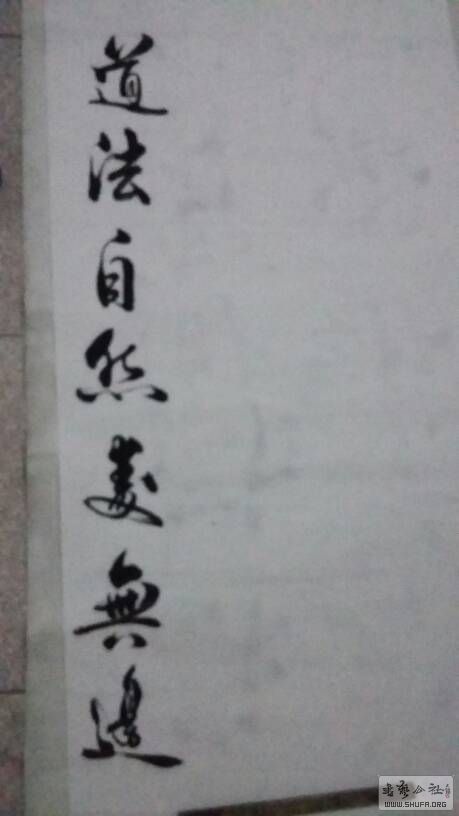 道法自然美無邊
书法公社
WWW.SHUFA.ORG